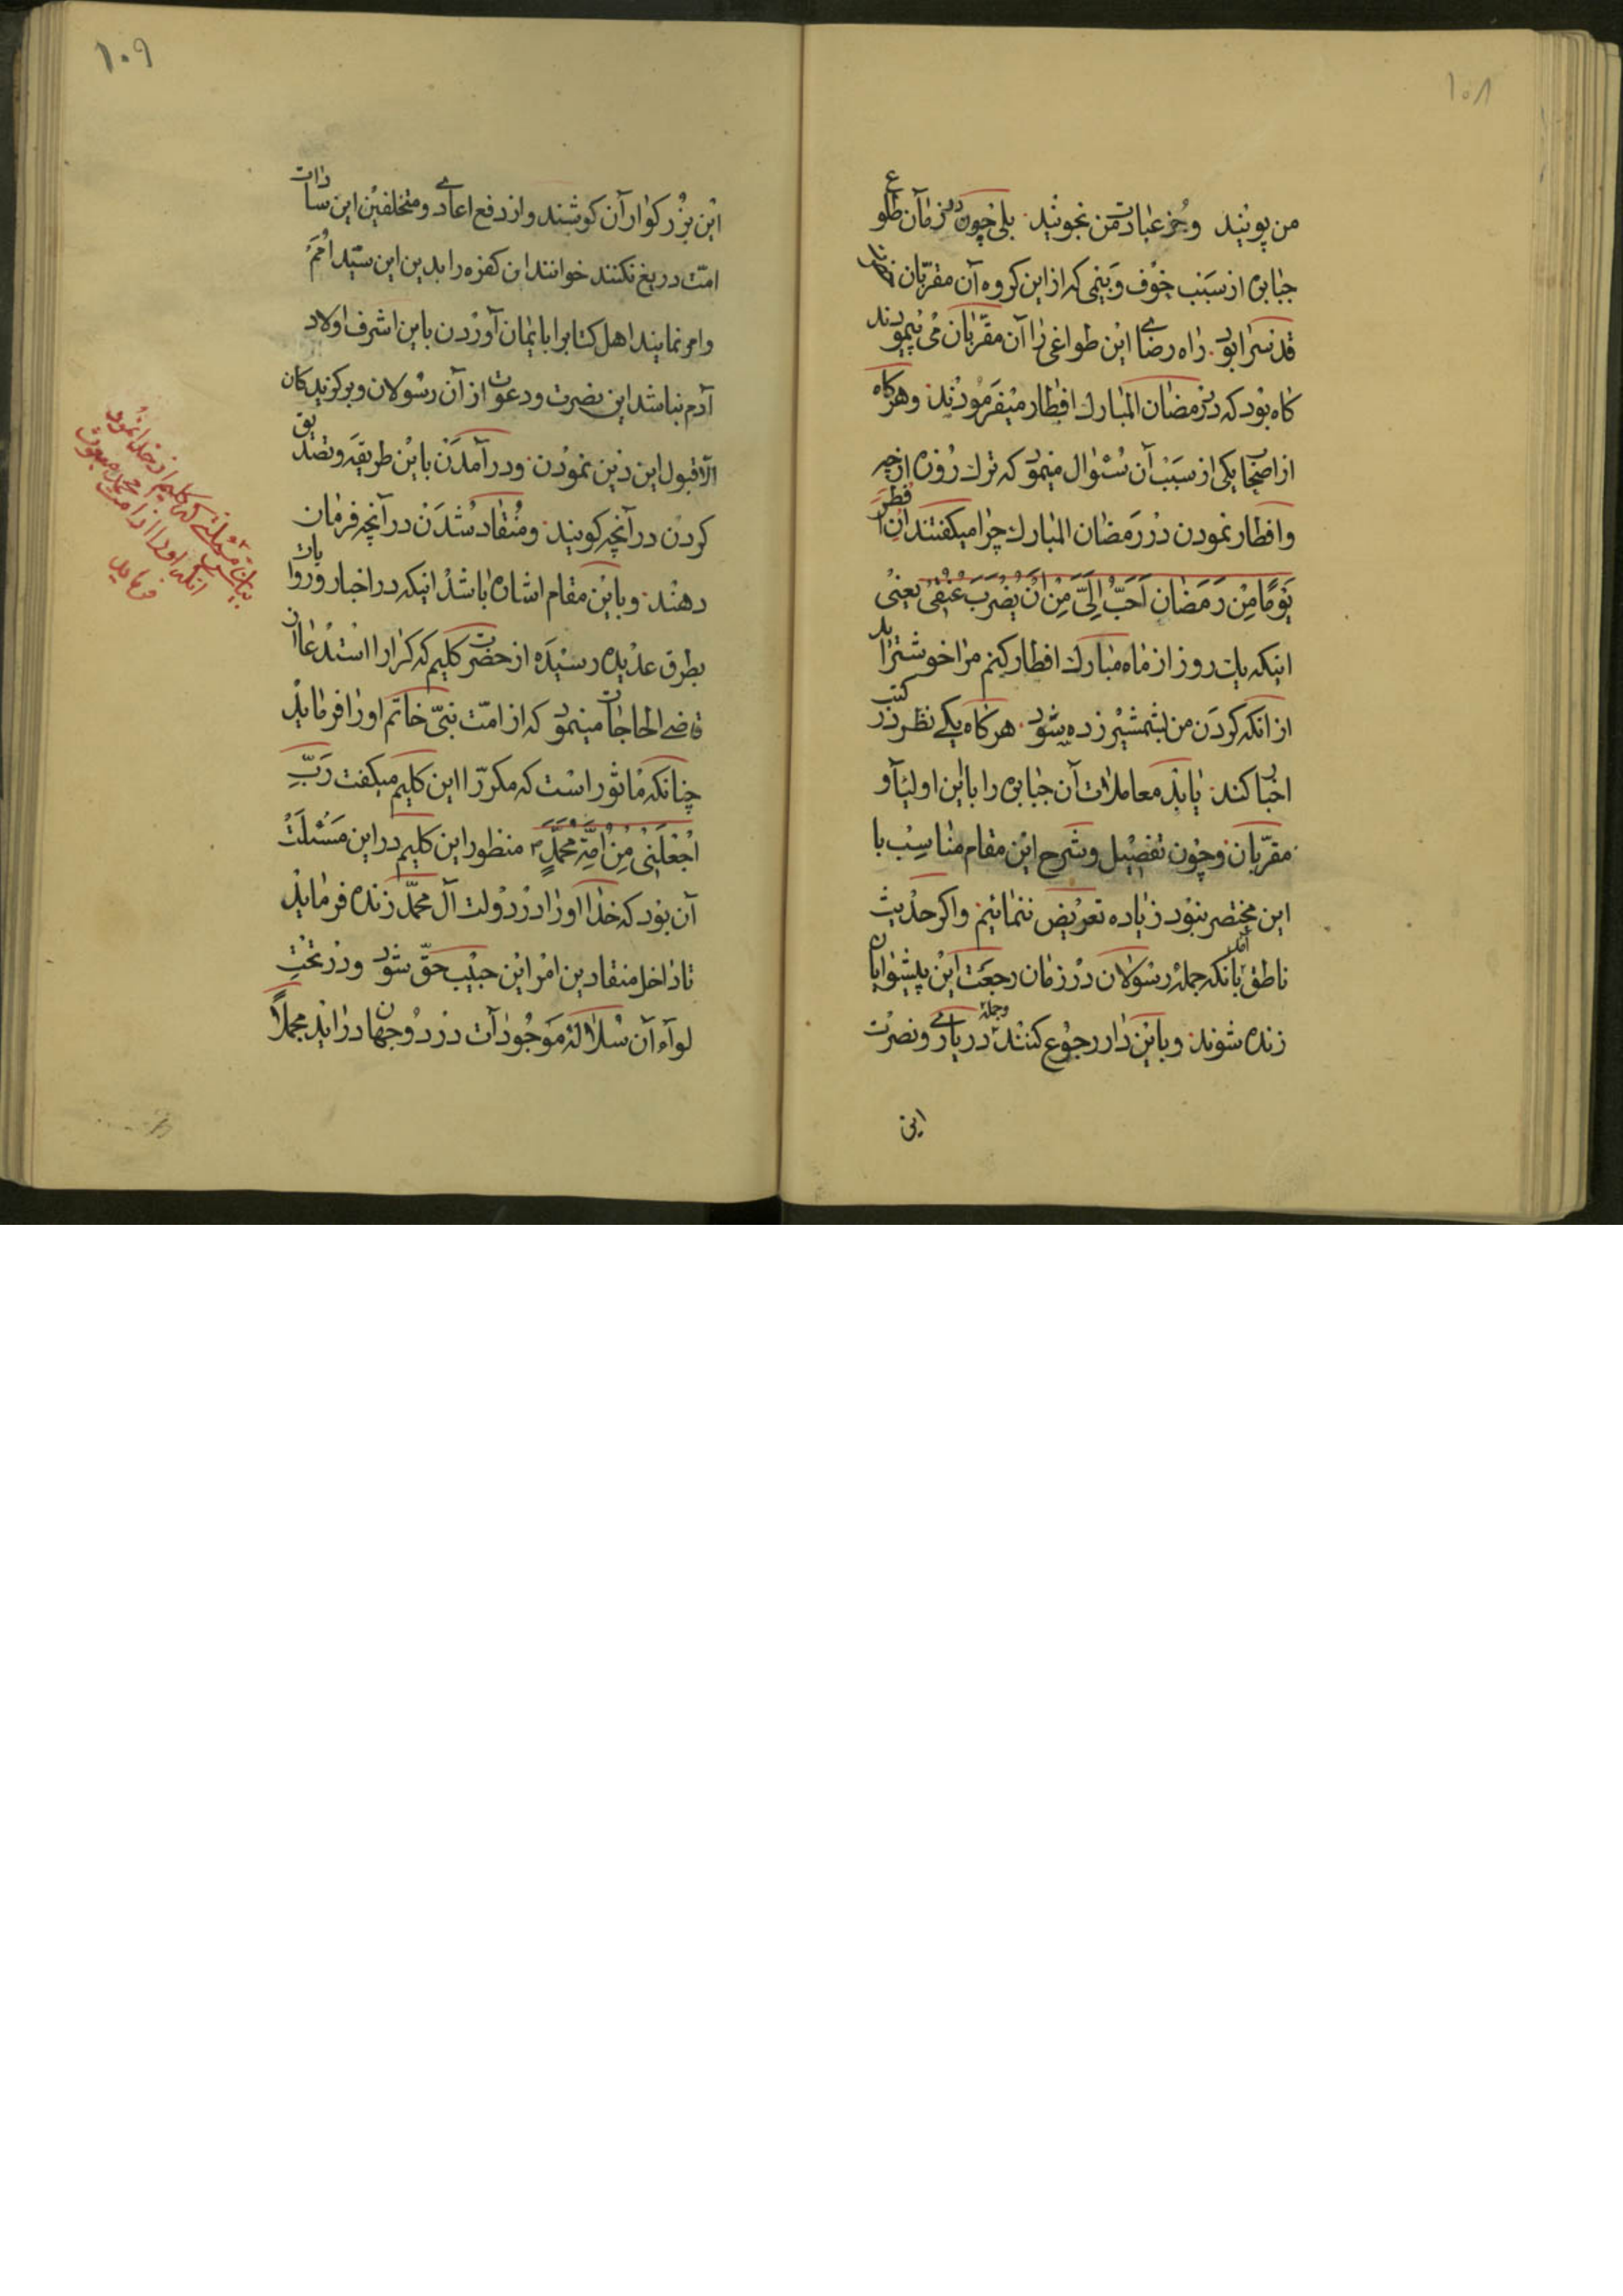 ۱۰۸
من پویند وجز عبادت من نجویند بلی چون در زمان طلوع
جبابره از سبب خوف و بیمی که از این کروه آن مقربان
قدسرا بود راه رضای این طواغی را آن مقربان می پیمودند
کاه بود که در رمضان المبارک افطار میفرمودند وهرکاه
از اصحاب یکی از سبب آن سئوال مینمود که ترک روزه از چه
وافطار نمودن در رمضان المبارک چرا میکفتند ان افطر
یَومًا مِنْ رَمَضٰانِ اَحَبُّ اِلَیَّ مِنْ اَنْ یُضْرَبَ عُنُقی یعنی
اینکه یک روز از ماه مبارک افطار کنم مرا خوشتر اید
از انکه کردن من بشمشیر زده شود هرکاه یکی نظر در کتب
اخبار کند یابد معاملات آن جبابره را باین اولیآء و
مقربان وچون تفصیل وشرح این مقام مناسب با
این مختصر نبود زیاده تعریض ننمائیم واکر حدیث
ناطق آمد بانکه جمله رسولان در زمان رجعت این پیشوایان
زنده شوند وباین دار رجوع کنند وجمله در یاری ونصرت
این
۱۰۹
این بزرکواران کوشند واز دفع اعادی ومتخلفین این سادات
امت دریغ نکنند خوانند ان کفره را بدین این سید امم
وامر نمایند اهل کتابرا بایمان آوردن باین اشرف اولاد
آدم نباشد این نصرت ودعوت از آن رسولان وبرکزیدکان
الّا قبول این دین نمودن ودر آمدن باین طریقه وتصدیق
کردن در آنچه کویند ومنقاد شدن در آنچه فرمان
دهند وباین مقام اشاره باشد اینکه در اخبار وروایات
بطرق عدیده رسیده از حضرت کلیم که کرارا استدعا از
قاضی الحاجات مینمود که از امت نبیّ خاتم اورا فرماید
چنانکه ماثور است که مکررّا این کلیم میکفت رَبِّ
اجْعَلَنیٖ مِنْ اُمَّةِ مُحَمَّدٍ منظور این کلیم در این مسئلت
آن بود که خدا اورا در دولت آل محمّد زنده فرماید
تا داخل منقادین امر این حبیب حقّ شود ودر تحت
لوآء آن سلاله موجودآت در دو جهان در اید مجملًا
بیان مسئلتی که کلیم از خدا نمود
انکه اورا از امت محمد مبعوث
فرماید